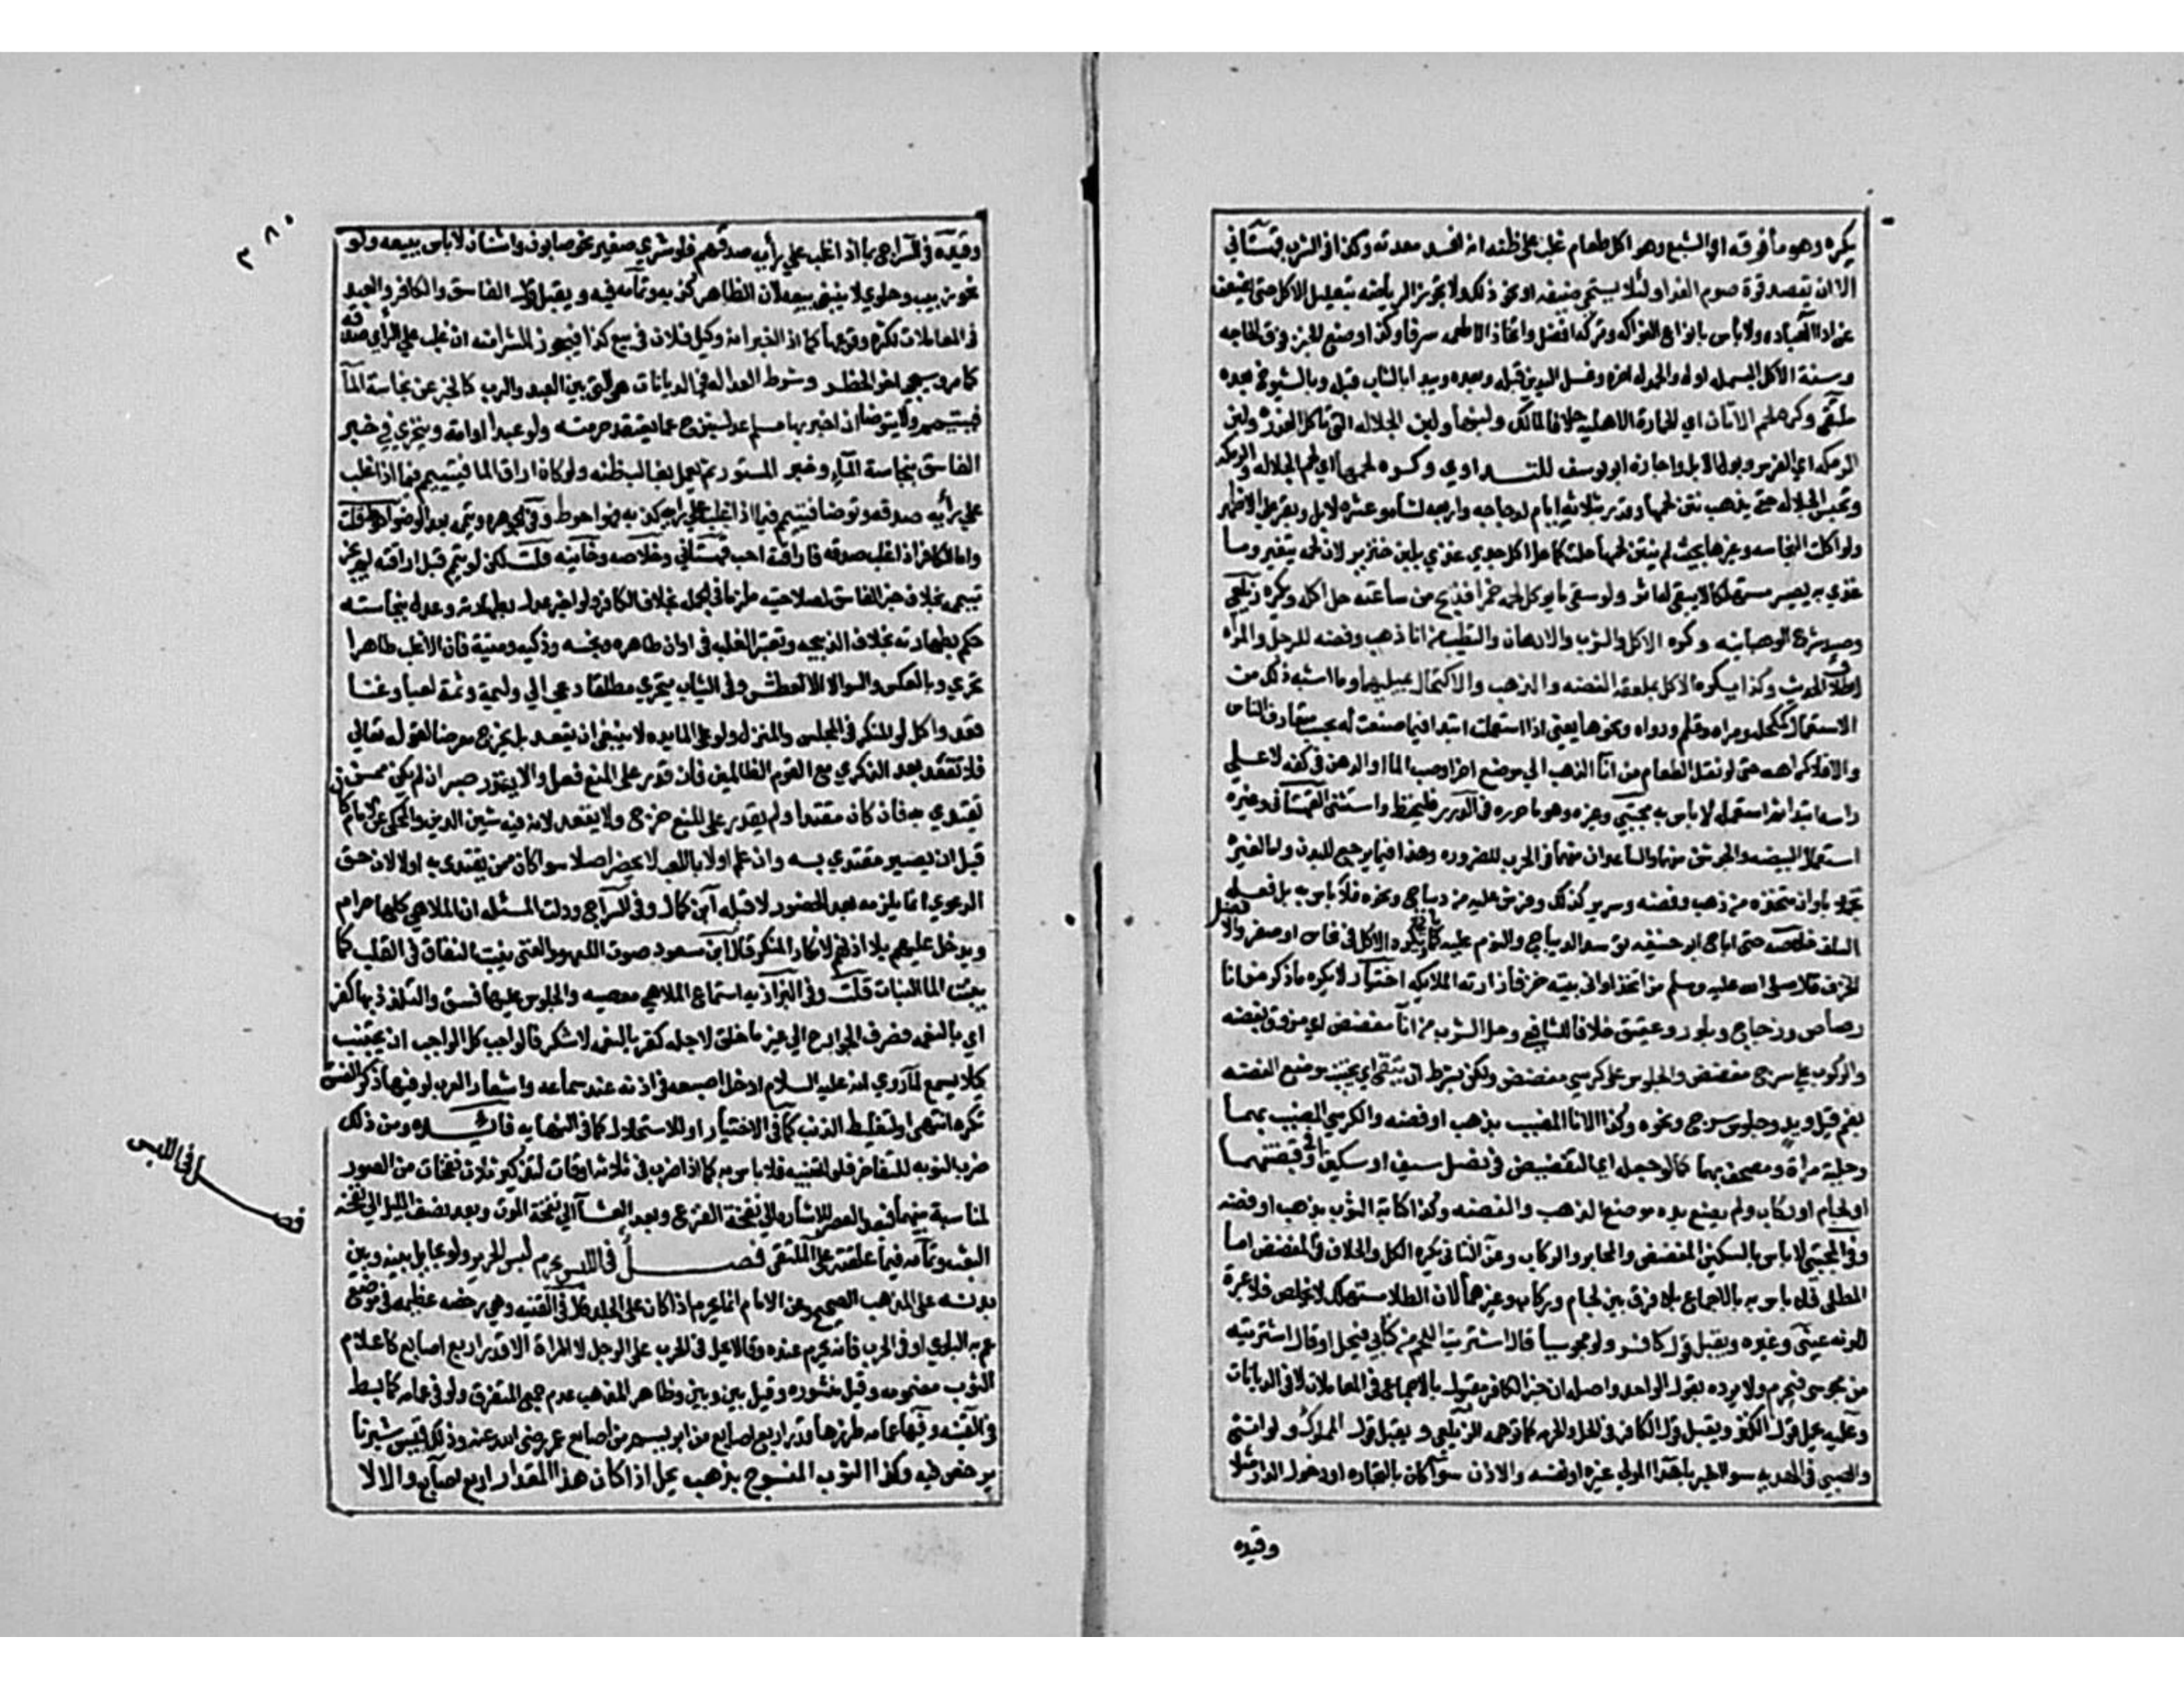 يكره وهو ما فوقه اي الشبع وهو اكل طعام غلب على ظنه انه افسد معدته وكذا في الشرب قهستاني
الا ان يقصد قوة صوم الغد او لئلا يستحي ضيفه او نحو ذلك ولا تجوز الرياضه بتقليل الاكل حتى يضعف
عن اداء العباده ولا باس بانواع الفواكه وتركه افضل واتخاذ الاطعمه سرف وكذا وضع الخبز فوق الحاجه
وسنة الاكل البسمله اوله والحمدله اخره وغسل اليدين قبله وبعده ويبدا بالشاب قبله وبالشيوخ بعده
ملتقى وكره لحم الاتان اي الحمارة الاهليه خلافا لمالك ولبنها ولبن الجلاله التي تاكل العذرة ولبن
الرمكه اي الفرس وبول الابل واجازه ابو يوسف للتداوي وكره لحمهما اي لحم الجلاله والرمكه
وتحبس الجلاله حتى يذهب نتن لحمها وقدر بثلاثة ايام لدجاجه واربعه لشاه وعشره لابل وبقر على الاظهر
ولو اكلت النجاسه وغيرها بحيث لم ينتن لحمها حلت كما حل اكل جدي غذي بلبن خنزير لان لحمه لا يتغير وما
غذي به يصير مستهلكا لا يبقى له اثر ولو سقي ما يوكل لحمه خمرا فذبح من ساعته حل اكله ويكره زيلعي
وصيد شرح الوهبانيه وكره الاكل والشرب والادهان والتطيب من انا ذهب وفضه للرجل والمراه
لاطلاق الحديث وكذا يكره الاكل بملعقة الفضه والذهب والاكتحال بميلهما وما اشبه ذلك من
الاستعمال كمكحله ومراه وقلم ودواه ونحوها يعني اذا استعملت ابتدا فيما صنعت له بحسب متعارف الناس
والا فلا كراهه حتى لو نقل الطعام من انا الذهب الى موضع اخر او صب الما او الدهن في كفه لا على
راسه ابتدا ثم استعمله لا باس به مجتبى وغيره وهو ما حرره في الدرر فليحفظ واستثنى القهستاني وغيره
استعمال البيضه والجوشن منهما والساعدان منهما في الحرب للضروره وهذا فيما يرجع للبدن واما لغيره
تجملا باوان متخذه من ذهب وفضه وسرير كذلك وفرش عليه من ديباج ونحوه فلا باس به بل فعله
السلف خلاصه حتى اباح ابو حنيفه توسد الديباج والنوم عليه كما ياتي ويكره الاكل في نحاس او صفر والافضل
الخزف قال صلى الله عليه وسلم من اتخذ اواني بيته خزفا زارته الملايكه اختيار لا يكره ما ذكر من انا
رصاص وزجاج وبلور وعقيق خلافا للشافعي وحل الشرب من انا مفضض اي مزوق بفضه
والركوب على سرج مفضض والجلوس على كرسي مفضض ولكن بشرط ان يتقي اي يجتنب موضع الفضه
بفم قيل ويد وجلوس سرج ونحوه وكذا الانا المضبب بذهب او فضه والكرسي المضبب بهما
وحلية مراة ومصحف بهما كما لو جعله اي التفضيض في نصل سيف او سكين او في قبضتهما
او لجام او ركاب ولم يضع يده موضع الذهب والفضه وكذا كتابة الثوب بذهب او فضه
وفي المجتبى لا باس بالسكين المفضض والمحابر والركاب وعن الثاني يكره الكل والخلاف في المفضض اما
المطلي فلا باس به بالاجماع بلا فرق بين لجام وركاب وغيرهما لان الطلا مستهلك لا يخلص فلا عبرة
للونه عيني وغيره ويقبل قول كافر ولو مجوسيا قال اشتريت اللحم من كتابي فيحل او قال اشتريته
من مجوسي فيحرم ولا يرده بقول الواحد واصله ان خبر الكافر مقبول بالاجماع في المعاملات لا في الديانات
وعليه يحمل قول الكنز ويقبل قول الكافر في الحل والحرمه كما توهمه الزيلعي ويقبل قول المملوك ولو انثى
والصبي في الهديه سوا اخبر باهدا المولى غيره او نفسه والاذن سوا كان بالتجاره او دخول الدار مثلا
وقيده
٣٨٥
وقيده في السراج بما اذا غلب على رأيه صدقهم فلو شري صغير نحو صابون واشنان لا باس ببيعه ولو
نحو زبيب وحلوى لا ينبغي بيعه لان الظاهر كذبه وتمامه فيه ويقبل قول الفاسق والكافر والعبد
في المعاملات لكثرة وقوعها كما اذا اخبر انه وكيل فلان في بيع كذا فيجوز الشرا منه ان غلب على الراي صدقه
كما مر وسيجي اخر الحظر وشرط العداله في الديانات هي التي بين العبد والرب كالخبر عن نجاسة الماء
فيتيمم ولا يتوضا ان اخبر بها مسلم عدل منزجر عما يعتقد حرمته ولو عبدا او امة ويتحرى في خبر
الفاسق بنجاسة الماء وخبر المستور ثم يعمل بغالب ظنه ولو كان اراق الما فتيمم فيما اذا غلب
على رأيه صدقه وتوضا فتيمم فيما اذا غلب على رايه كذبه فهو احوط وفي الجوهره وتيممه بعد الوضوء احوط قلت
واما الكافر اذا غلب صدقه فاراقته احب قهستاني وخلاصه وخانيه قلت لكن لو تيمم قبل اراقته لم يجز
تيممه بخلاف خبر الفاسق لصلاحيته ملزما في الجمله بخلاف الكافر ولو اخبر عدل بطهارته وعدل بنجاسته
حكم بطهارته بخلاف الذبيحه وتعتبر الغلبه في اوان طاهره ونجسه وذكيه وميتة فان الاغلب طاهرا
تحرى وبالعكس والسواء لا الا لعطش وفي الثياب يتحرى مطلقا دعي الى وليمة وثمة لعب او غنا
قعد واكل لو المنكر في المجلس والمنزل ولو على المايده لا ينبغي ان يقعد بل يخرج معرضا لقوله تعالى
فلا تقعد بعد الذكرى مع القوم الظالمين فان قدر على المنع فعل والا يقدر صبر ان لم يكن ممن
يقتدى به فان كان مقتدا ولم يقدر على المنع خرج ولا يقعد لان فيه شين الدين والمحكي عن الامام كان
قبل ان يصير مقتدى به وان علم اولا باللعب لا يحضر اصلا سوا كان ممن يقتدى به او لا لان حق
الدعوى انما يلزمه بعد الحضور لا قبله ابن كمال وفي السراج ودلت المسئله ان الملاهي كلها حرام
ويدخل عليهم بلا اذنهم لانكار المنكر قال ابن مسعود صوت اللهو والغنى ينبت النفاق في القلب كما
ينبت الما النبات قلت وفي البزازيه استماع الملاهي معصيه والجلوس عليها فسق والتلذذ بها كفر
اي بالنعمه فصرف الجوارح الى غير ما خلق لاجله كفر بالنعمه لا شكر فالواجب كل الواجب ان يجتنب
كيلا يسمع لما روي انه عليه السلام ادخل اصبعه في اذنه عند سماعه واشعار العرب لو فيها ذكر الفسق
تكره انتهى او لتغليظ الذنب كما في الاختيار او للاستحلال كما في النهايه فائده ومن ذلك
ضرب النوبه للتفاخر فلو للتنبيه فلا باس به كما اذا ضرب في ثلاث اوقات لتذكير ثلاث نفخات من الصور
لمناسبة بينهما فبعد العصر للاشاره الى نفخة الفزع وبعد العشا الى نفخة الموت وبعد نصف الليل الى نفخة
البعث وتمامه فيما علقته على الملتقى فصل في اللبس يحرم لبس الحرير ولو بحايل بينه وبين
بدنه على المذهب الصحيح وعن الامام انما يحرم اذا كان على الجلد قال في القنيه وهي رخصه عظيمه في موضع
عم به البلوى او في الحرب فانه يحرم عنده وقالا يحل في الحرب على الرجل لا المراة الا قدر اربع اصابع كاعلام
الثوب مضمومه وقيل منشوره وقيل بين وبين وظاهر المذهب عدم جمع المتفرق ولو في عمامه كما بسط
في القنيه وفيها عمامه طرزها قدر اربع اصابع من ابريسم من اصابع عمر رضي الله عنه وذلك قيس شبرنا
يرخص فيه وكذا الثوب المنسوج بذهب يحل اذا كان هذا المقدار اربع اصابع والا لا
فصل في اللبس